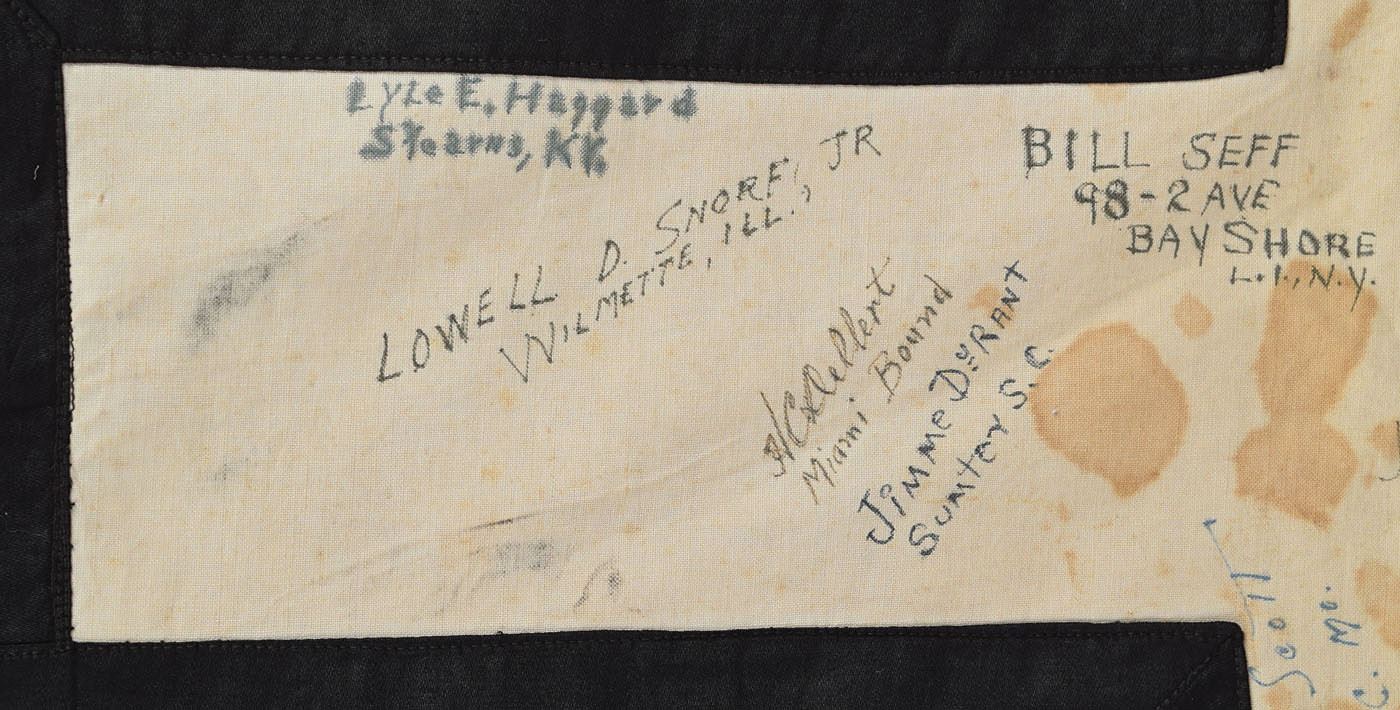 Lyle E. Haggard
Stearns, KY.
LOWELL D. SNORF, JR
WILMETTE, ILL.,
BILL SEFF
98-2 AVE
BAY SHORE
L.I., N.Y.
Miami Bound
JiMMe DuRANT
SumTer S.C.
Scott
C. Mo.